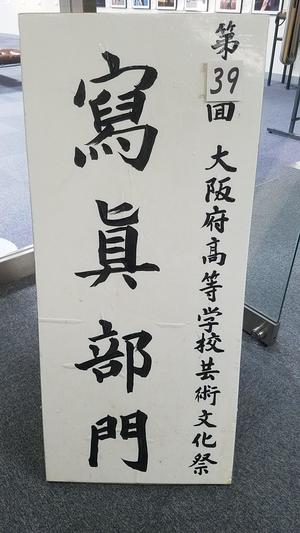 第39回 大阪府高等学校芸術文化祭
寫眞部門